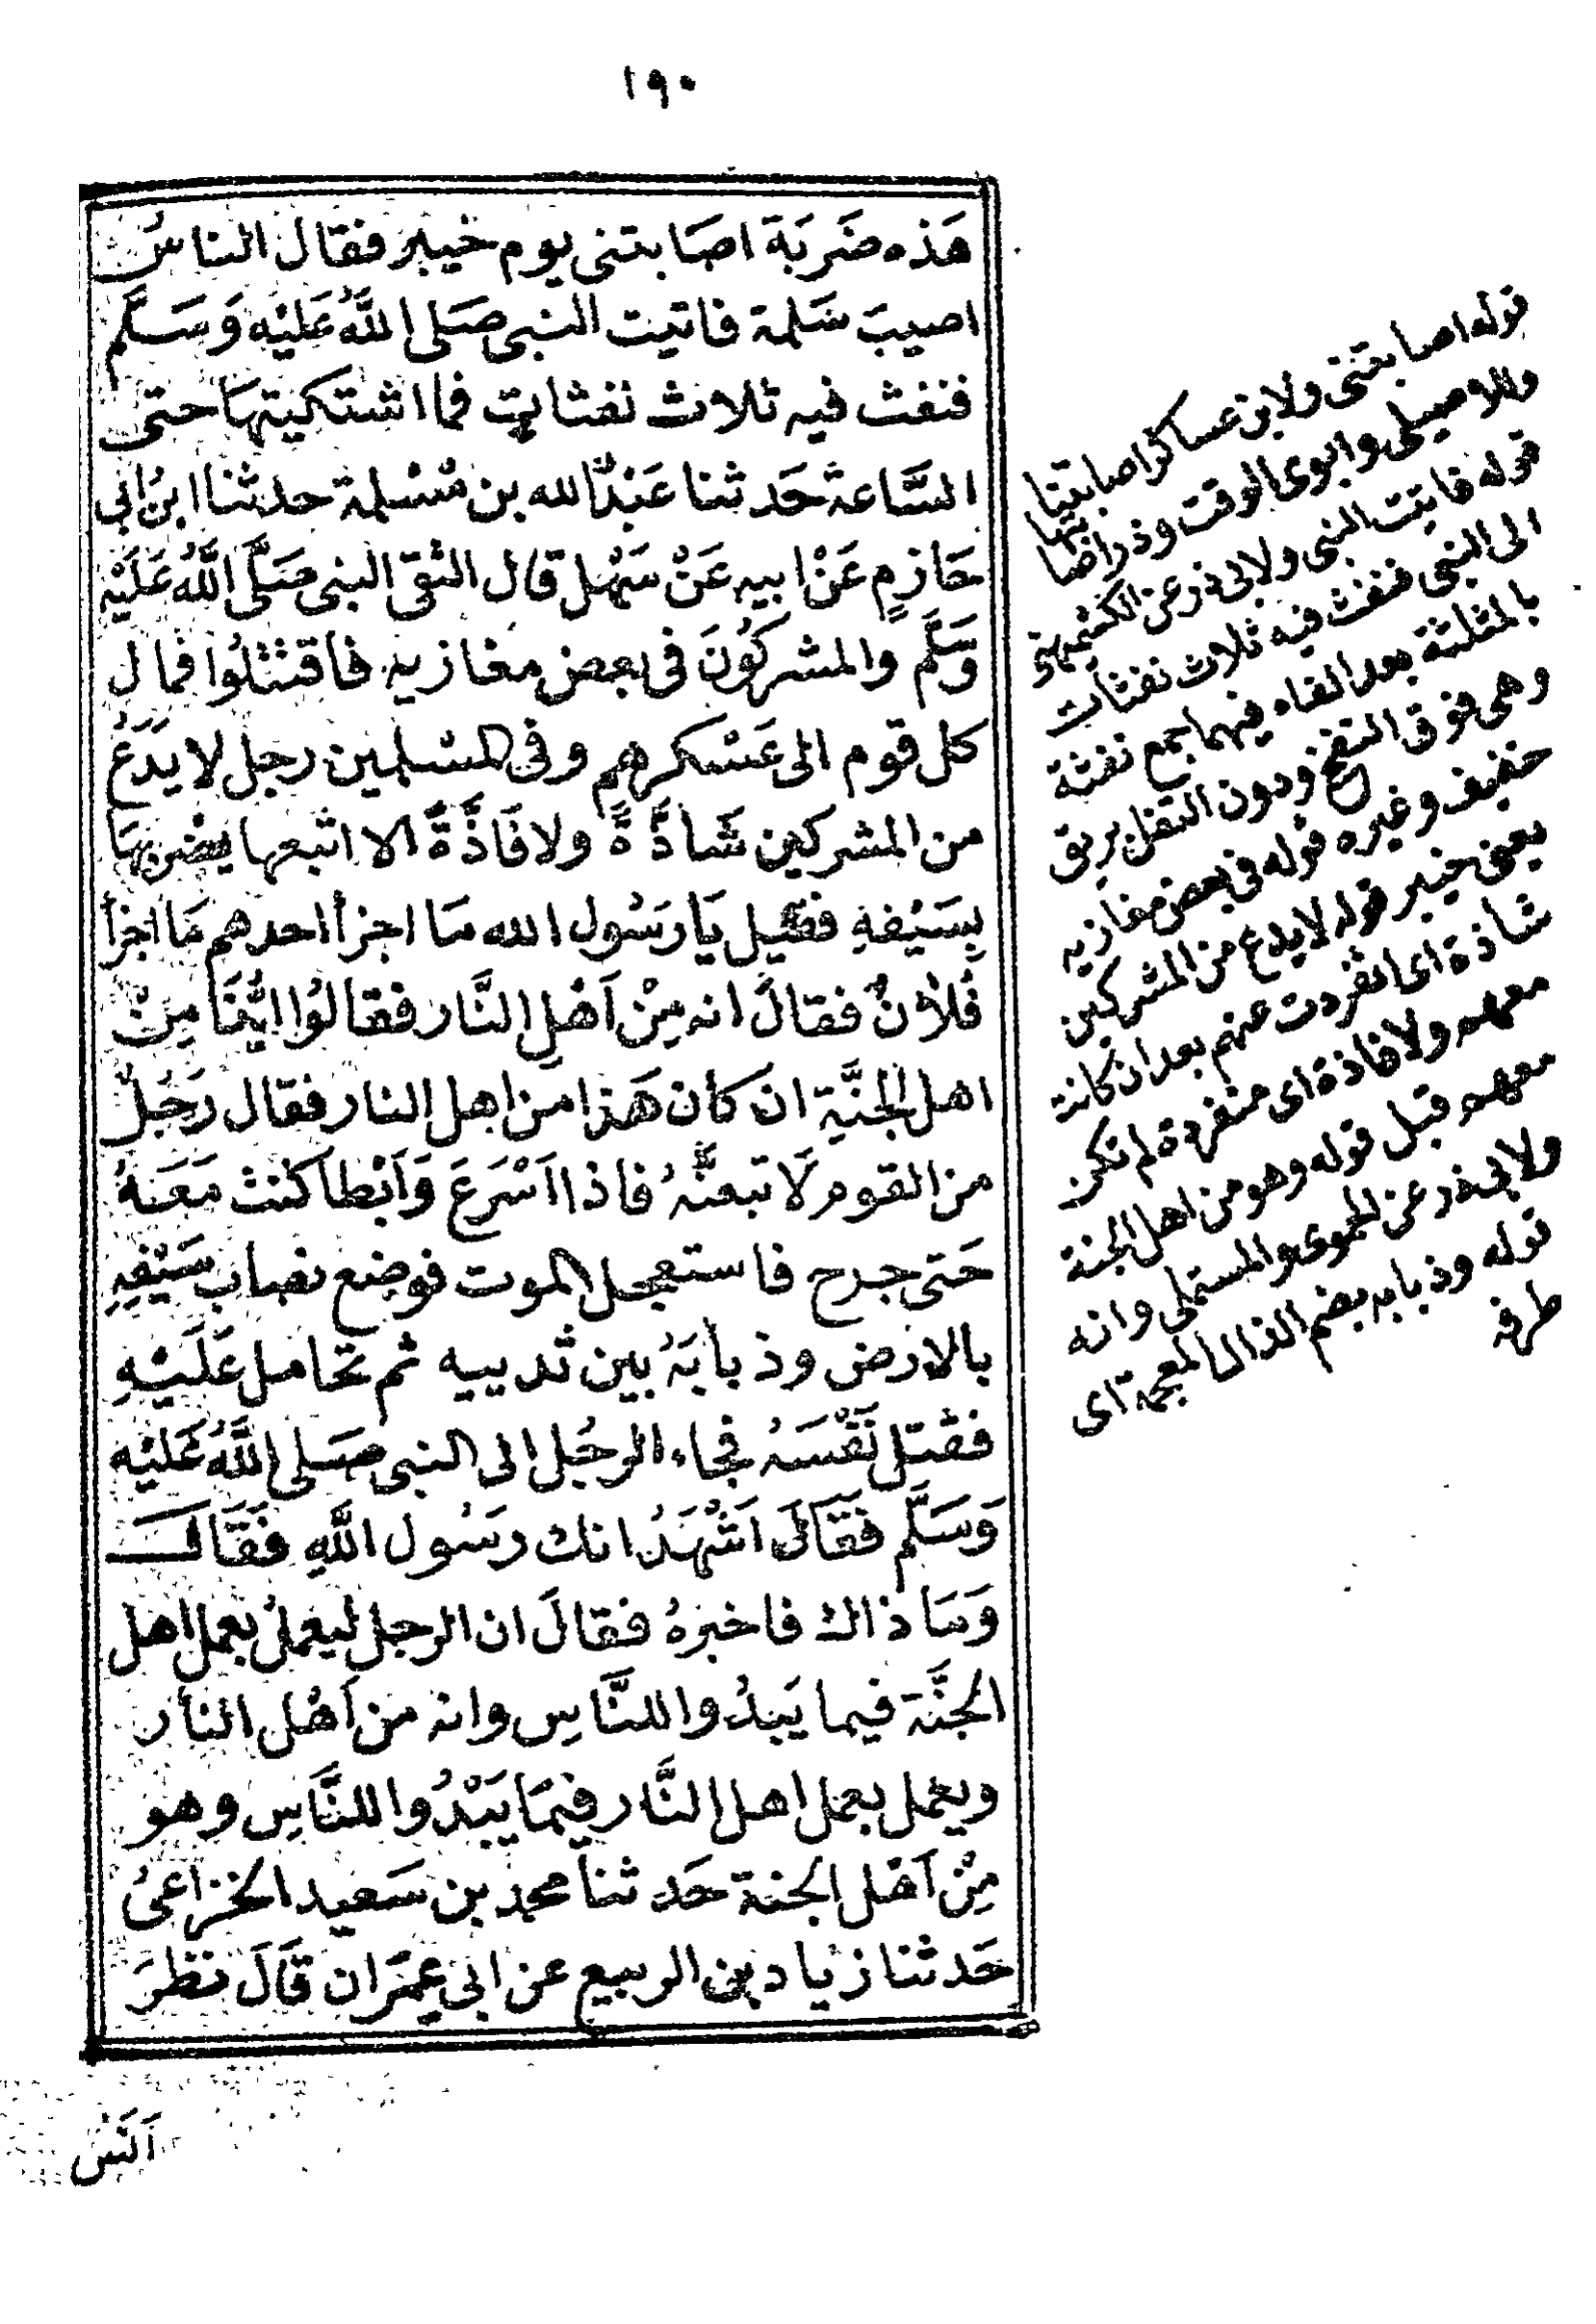 ١٩٠
هَذه ضَربَة اصَابتنى يوم خيبر فقال الناسُ
اصيبَ سَلمة فاتيت النبى صَلى اللَّهُ عَليْه وَسَلَّم
فنفث فيه ثلاث نفثات فما اشتكيتهَا حتى
السَّاعة حَدثنا عَبْدُ الله بن مَسْلمة حدثنا ابنُ ابى
حَازمٍ عَنْ ابيه عَنْ سَهْل قال التقى النبى صَلَّى اللَّهُ عَلَيْه
وَسَلَّم والمشركُونَ فى بعض مغازيه فاقتتلُوا فمال
كل قوم الى عَسْكرهم وفى المسْلمين رجل لا يَدَعُ
من المشركين شَاذَّةً ولا فَاذَّةً الا اتبعها يضْربهَا
بِسَيْفهِ فقيل يَارَسُول الله مَا اجزأ احدهم مَا اجزأ
فُلانٌ فقالَ انه مِنْ اَهْل النَّار فقالُوا ايُّنَا مِنْ
اهل الجنَّةِ ان كان هَذا من اهل النار فقال رَجُلٌ
من القوم لَاتبعنَّهُ فاذا اَسْرَعَ وَاَبْطا كنت مَعَهُ
حَتى جرح فاستعجل الموت فوضع نصابَ سَيْفِهِ
بالارض وذبابَهُ بين ثدييه ثم تحامل عَلَيْهِ
فقتل نَفْسَهُ فجاء الرجُل الى النبى صَلى اللَّهُ عَليْه
وَسَلَّم فَقَالَ اَشْهَدُ انك رسُول اللَّهِ فَقَالَ
وَمَا ذاك فاخبرهُ فقالَ ان الرجل ليَعْملُ بعمل اهل
الجنَّة فيما يَبدُو اللنَّاسِ وانه من اَهْل النار
ويعمل بعمل اهل النَّار فيمَا يَبْدُوا للنَّاسِ وهو
مِنْ اَهْل الجنة حَدثنا محمد بن سَعيد الخزاعىُ
حَدثنا زياد بن الربيع عن ابى عمرَان قَالَ نظرَ
اَنَسْ
قوله اصابتنى ولابن عساكر اصابتنا
وللاصيلى وابوى الوقت وذر اصابتها
قوله فاتيت النبى ولابى ذر عن الكشميهنى
الى النبى فنفث فيه ثلاث نفثات
بالمثلثة بعد الفاء فيهما جمع نفثة
وهى فوق النفخ ودون التفل بريق
خفيف وغيره قوله فى بعض مغازيه
يعنى خيبر قوله لا يدع من المشركين
شاذة اى انفردت عنهم بعد ان كانت
معهم ولا فاذة اى منفردة لم تكن
معهم قبل قوله وهو من اهل الجنة
ولابى ذر عن الحموى والمستملى وانه
قوله وذبابه بضم الذال المعجمة اى
طرفه